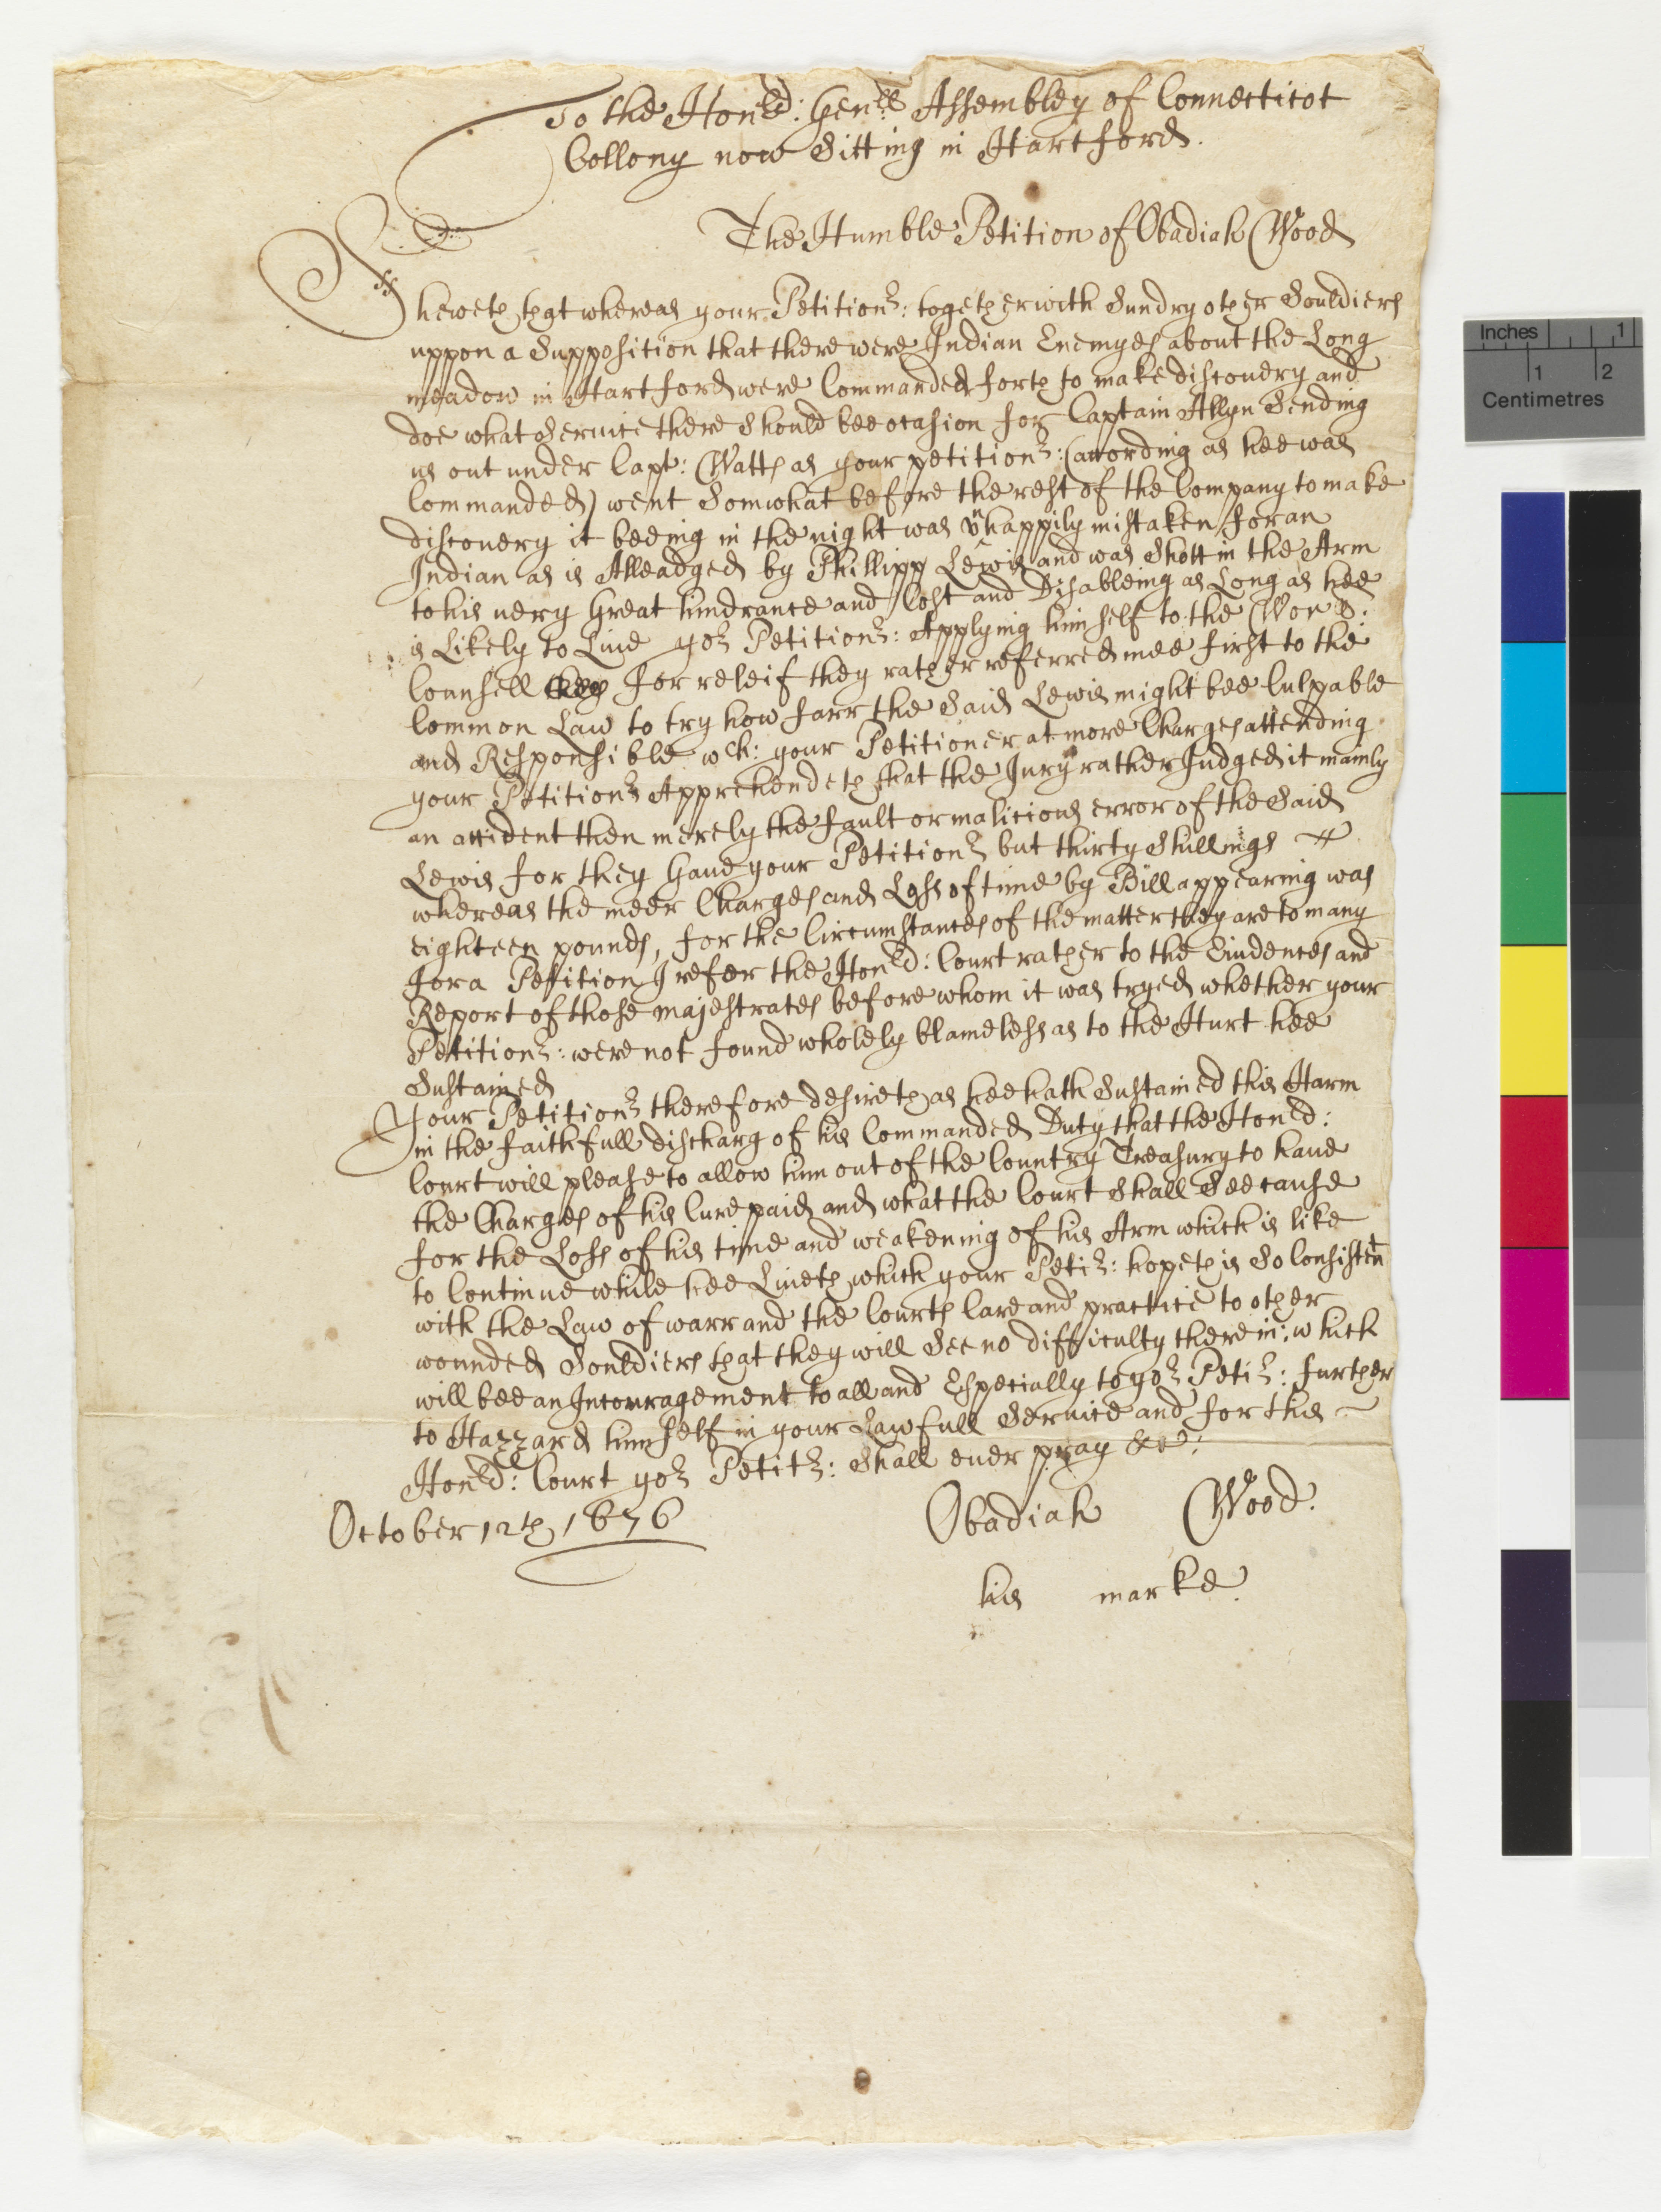 To the Honrd: Genrll Assembley of Connecticot
Collony now Sitting in Hartford.
The Humble Petition of Obadiah Wood
Sheweth that whereas your Petitionr: together with Sundry other Souldiers
uppon a Supposition that there were Indian Enemyes about the Long
meadow in Hartford were Commanded forth to make discouery and
doe what Seruice there Should bee ocasion for Captain Allyn Sending
us out under Capt: Watts as your petitionr: (acording as hee was
Commanded) went Somwhat before the rest of the Company to make
discouery it beeing in the night was unhappily mistaken for an
Indian as is Alleadged by Phillipp Lewis and was Shott in the Arm
to his uery Great hindrance and Cost and Disableing as Long as hee
is Likely to Liue yor Petitionr: Applying himself to the Wor:
Counsell for releif they rather referred mee first to the
Common Law to try how farr the Said Lewis might bee Culpable
and Responsible wch: your Petitioner at more Charges attending
your Petitionr Apprehendeth that the Jury rather Judged it mainly
an accident then merely the fault or malicious error of the Said
Lewis for they Gaue your Petitionr but thirty Shillings
whereas the meer Charges and Loss of time by Bill appearing was
eighteen pounds, for the Circumstances of the matter they are to many
for a Petition I refer the Honrd: Court rather to the Euidences and
Report of those majestrates before whom it was tryed whether your
Petitionr: were not found wholely blameless as to the Hurt hee
Sustained
Your Petitionr therefore desireth as hee hath Sustained this Harm
in the faithfull discharg of his Commanded Duty that the Honrd:
Court will please to allow him out of the Country Treasury to haue
the Charges of his Cure paid and what the Court Shall See cause
for the Loss of his time and weakening of his Arm which is like
to Continue while hee Liueth which your Petir: hopeth is So Consistent
with the Law of warr and the Courts Care and practice to other
wounded Souldiers that they will See no difficulty therein; which
will bee an Incouragement to all and Especially to yor Petir: further
to Hazzard himself in your Lawfull Seruice and for this
Honrd: Court yor Petitr: Shall euer pray &c:
October 12th 1676
Obadiah Wood.
his marke
Inches 1
1 2
Centimetres